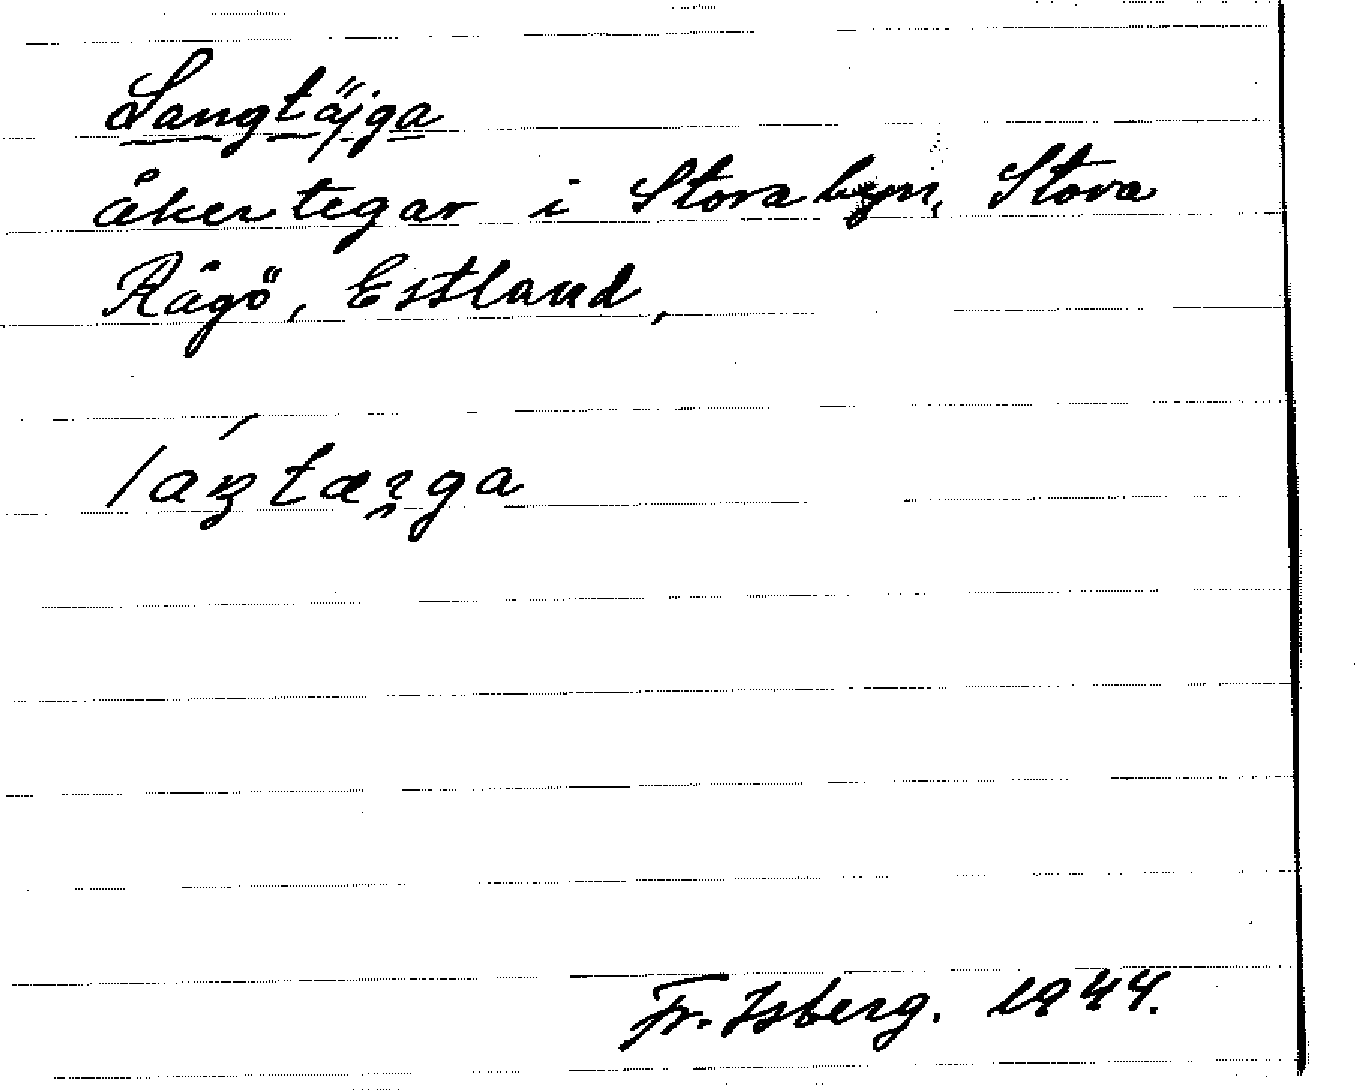 Langtäjga
åkertegar i Storabyn, Stora
Rågö, Estland,
laŋtæıga
Fr. Isberg. 1944.